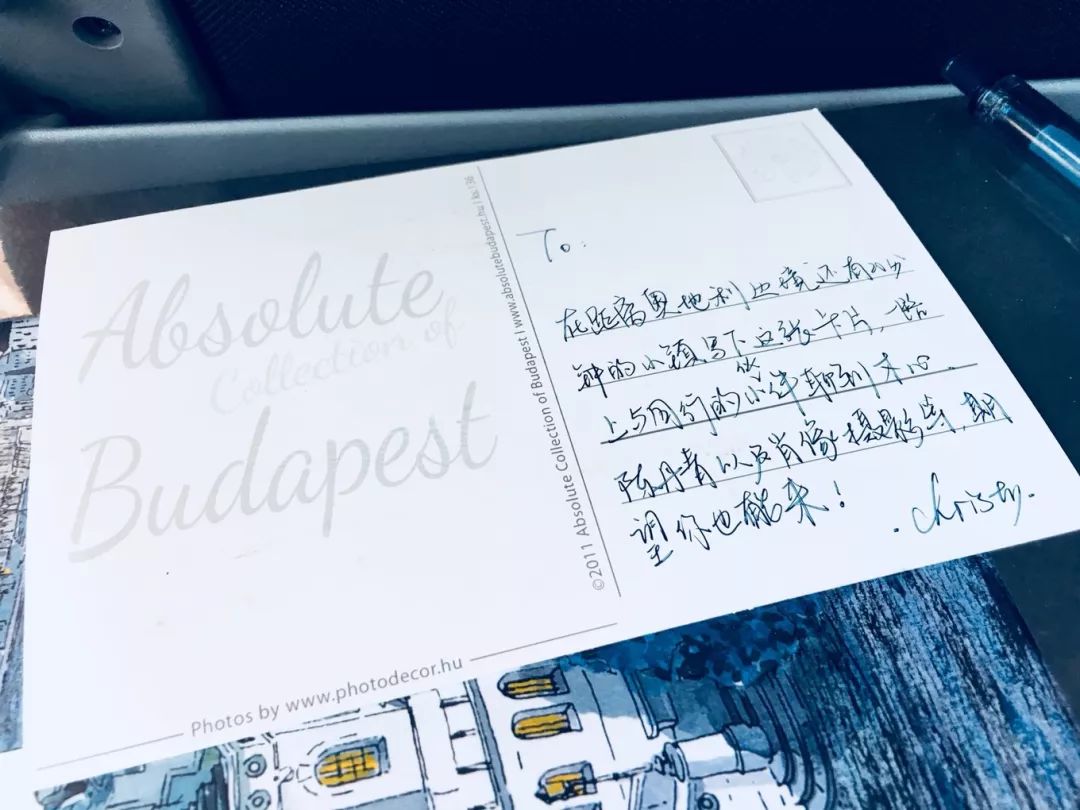 Absolute
Collection of
Budapest
Photos by www.photodecor.hu
©2011 Absolute Collection of Budapest I www.absolutebudapest.hu I kk136
To:
在距离奥地利边境还有20分
钟的小镇写下这张卡片,一路
上与同行的小伙伴聊到木心、
陈丹青以及肖像摄影等,期
望你也能来!
. Christy.